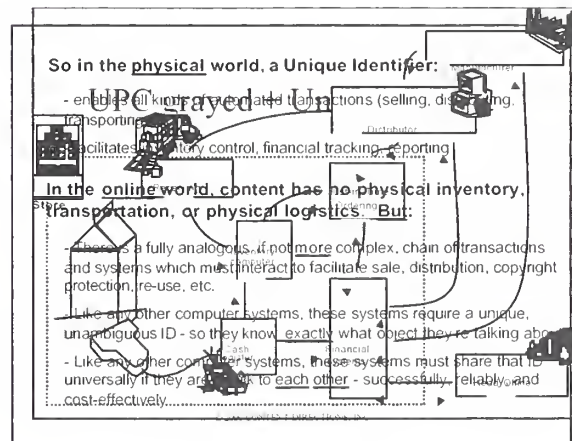 So in the physical world, a Unique Identifier:
UPC grayed + Un
- enables all kinds of automated transactions (selling, distributing,
transporting
Distributor
- facilitates inventory control, financial tracking, reporting
Store
In the online world, content has no physical inventory,
Ordering
transportation, or physical logistics. But:
- There is a fully analogous, if not more complex, chain of transactions
computer
and systems which must interact to facilitate sale, distribution, copyright
protection, re-use, etc.
- Like any other computer systems, these systems require a unique,
unambiguous ID - so they know exactly what object they're talking abo
Cash
Financial
- Like any other computer systems, these systems must share that ID
universally if they are to talk to each other - successfully, reliably, and
cost-effectively